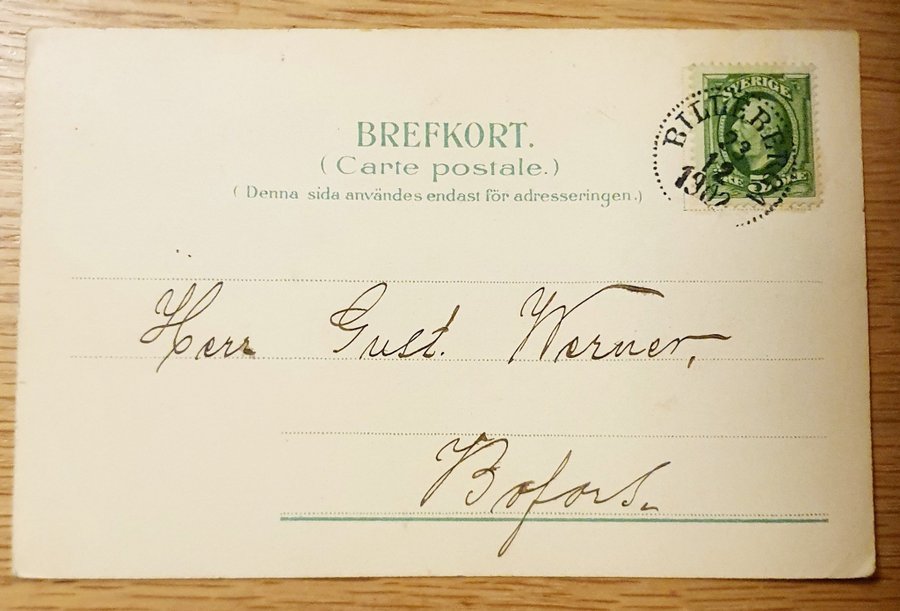 BREFKORT.
(Carte postale.)
(Denna sida användes endast för adresseringen.)
SVERIGE
5
BILLEBERGA
23
12
1902
Herr Gust. Werner,
Bofors.